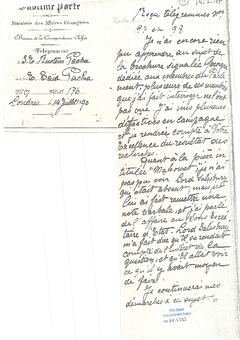 Sublime Porte
Ministère des Affaires Étrangères
Direction de la Correspondance Chiffrée
Télégramme
S. E. Rustem Pacha
S. E. Saïd Pacha
No 176
Londres, le Juillet 90
Reçu télégrammes Nos
93 et 98
Je n'ai encore rien
pu apprendre au sujet de
la brochure signalée
dédiée aux membres du Parle-
ment; plusieurs de ces membres
que j'ai fait interroger ne l'ont
pas vue. J'ai mis plusieurs
détectives en campagne
et je rendrai compte à Votre
Excellence du résultat des
recherches.
Quant à la pièce in-
titulée "Mahomet" je n'ai
pas pu voir Lord Salisbury
qui était absent, mais je
lui ai fait remettre une
note verbale et j'ai parlé
de l'affaire au Sous Secré-
taire d'Etat. Lord Salisbury
m'a fait dire qu'il se rendait
compte de l'intérêt de la
question et qu'il allait voir
ce qu'il y avait moyen
de faire.
Je continuerai mes
démarches à ce sujet.